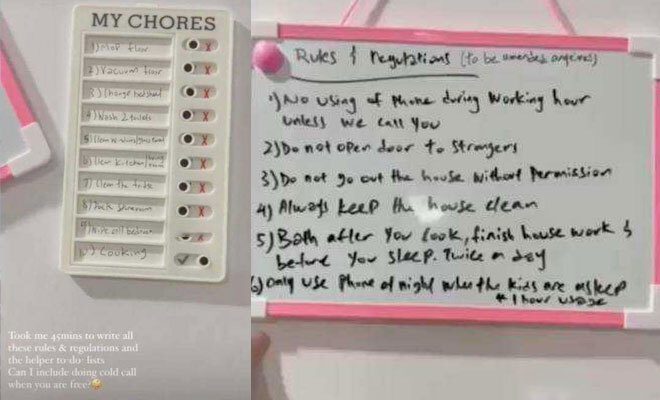 MY CHORES
1) Mop floor
2) Vacuum floor
3) Change bedsheet
4) Wash 2 toilets
5) Clean
6) Clean Kitchen/
7) Clean the
8)
9) Wipe all
10) Cooking
Took me 45mins to write all
these rules & regulations and
the helper to-do- lists
Can I include doing cold call
when you are free?
Rules & regulations (to be amended anytime)
1) No using of Phone during working hour
unless we call you
2) Do not open door to strangers
3) Do not go out the house without Permission
4) Always keep the house clean
5) Bath after You Cook, finish house work &
before you sleep. Twice a day
6) Only use Phone at night when the kids are asleep
* 1 hour usage